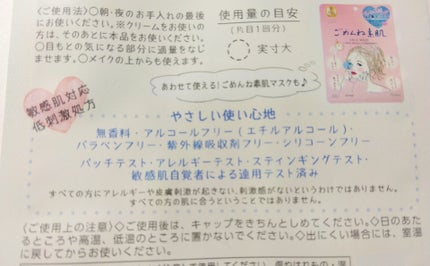 〈ご使用法〉◇朝・夜のお手入れの最後
にお使いください。※クリームをお使いの
方は、そのあとに本品をお使いください。
◇目もとの気になる部分に適量をなじ
ませます。◇メイクの上からも使えます。
使用量の目安
(片目1回分)
実寸大
ごめんね素肌
あわせて使える!ごめんね素肌マスクも♪
敏感肌対応
低刺激処方
やさしい使い心地
無香料・アルコールフリー(エチルアルコール)・
パラベンフリー・紫外線吸収剤フリー・シリコーンフリー
パッチテスト・アレルギーテスト・スティンギングテスト・
敏感肌自覚者による連用テスト済み
すべての方にアレルギーや皮膚刺激が起きない、刺激感がないというわけではありません。
すべての方の肌に合うということではありません。
〈ご使用上の注意〉◇ご使用後は、キャップをきちんとしめてください。◇日のあた
るところや高温、低温のところに置かないでください。◇出にくい場合には、室温
に戻してからお使いください。